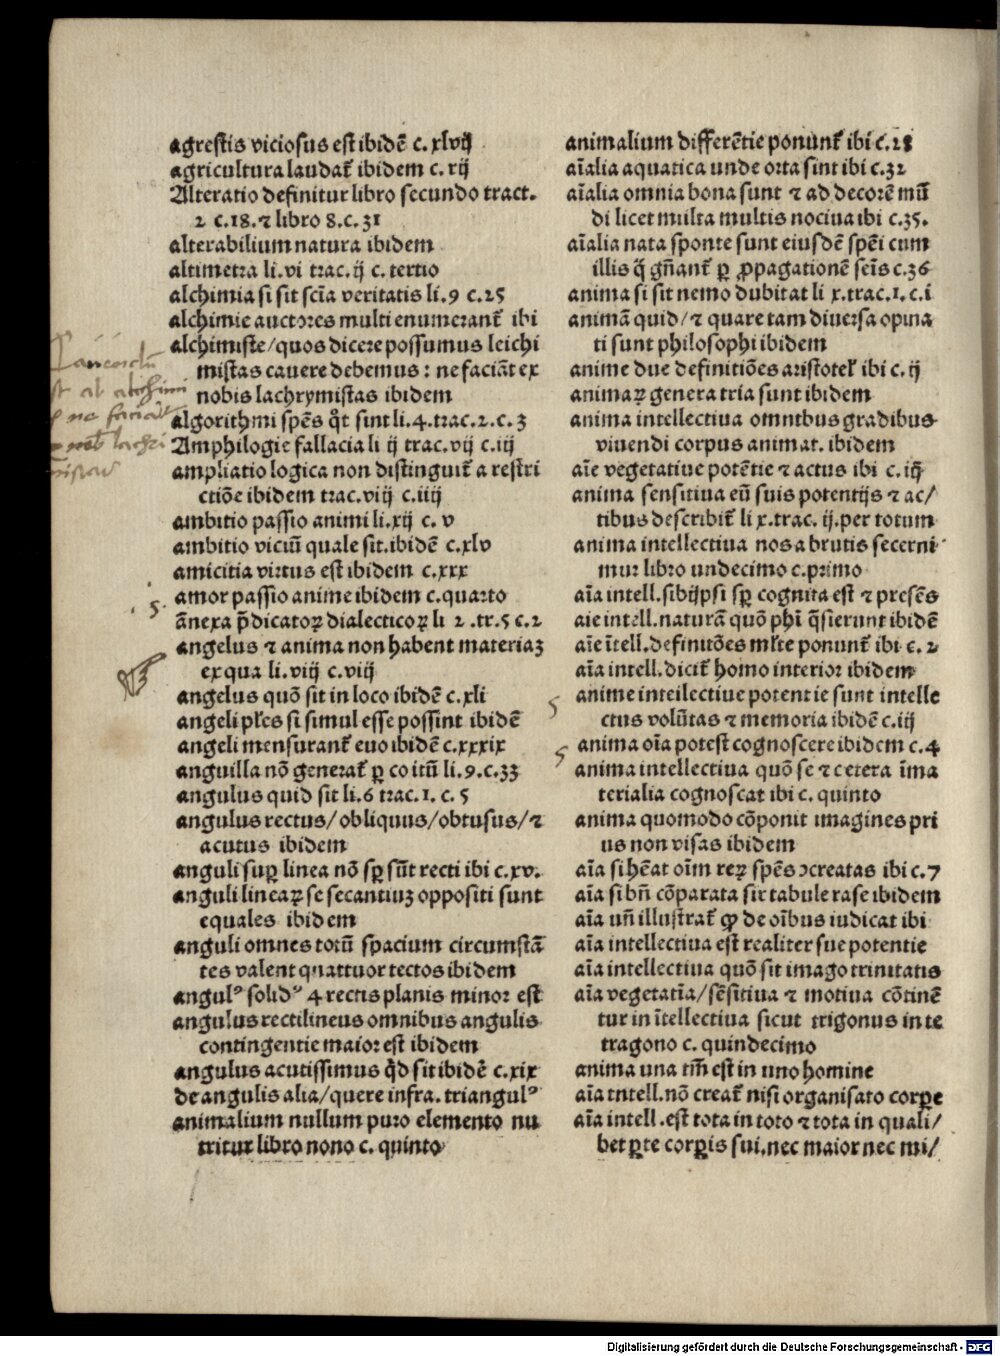 agrestis viciosus est ibidē c. xlvij
agricultura laudat᷑ ibidem c. xij
Alteratio definitur libro secundo tract.
2 c.18. ⁊ libro 8.c.31
alterabilium natura ibidem
altimetra li.vi trac.ij c. tertio
alchimia si sit scīa veritatis li.9 c.25
alchimie auctores multi enumerant᷑ ibi
alchimiste/quos dicere possumus leichi
mistas cauere debemus: ne faciāt ex
nobis lachrymistas ibidem
algorithmi spēs q̊t sint li.4.trac.2.c.3
Amphilogie fallacia li ij trac.vij c.iij
ampliatio logica non distinguit᷑ a restri
ctiōe ibidem trac.viij c.iiij
ambitio passio animi li.xij c. v
ambitio viciū quale sit.ibidē c.xlv
amicitia virtus est ibidem c.xxx
amor passio anime ibidem c.quarto
5.
ānexa p̄dicatoꝝ dialecticoꝝ li 2 .tr.5 c.2
angelus ⁊ anima non habent materiaꝫ
ex qua li.viij c.viij
angelus quō sit in loco ibidē c.xli
angeli pl̄es si simul esse possint ibidē
angeli mensurant᷑ euo ibidē c.xxxix
anguilla nō generat᷑ ꝑ coitū li.9.c.33
angulus quid sit li.6 trac.1. c. 5
angulus rectus/obliquus/obtusus/⁊
acutus ibidem
anguli suꝑ linea nō sꝑ sūt recti ibi c.xv.
anguli lineaꝝ se secantiuꝫ oppositi sunt
equales ibidem
anguli omnes totū spacium circumstā
tes valent quattuor rectos ibidem
angulꝰ solidꝰ 4 rectis planis minor est
angulus rectilineus omnibus angulis
contingentie maior est ibidem
angulus acutissimus q̇d sit ibidē c.xix
de angulis alia/quere infra. triangulꝰ
animalium nullum puro elemento nu
tritur libro nono c. quinto
animalium differētie ponunt᷑ ibi c.28
aīalia aquatica unde orta sint ibi c.32
aīalia omnia bona sunt ⁊ ad decorē mū
di licet multa multis nociua ibi c.35.
aīalia nata sponte sunt eiusdē spēi cum
illis q̄ gn̄ant᷑ ꝑ ꝓpagationē seīs c.36
anima si sit nemo dubitat li x.trac.1. c.i
animā quid/⁊ quare tam diuersa opina
ti sunt philosophi ibidem
anime due definitiōes aristotel᷑ ibi c. ij
animaꝝ genera tria sunt ibidem
anima intellectiua omnibus gradibus
viuendi corpus animat. ibidem
aīe vegetatiue potētie ⁊ actus ibi c. iij
anima sensitiua cū suis potentijs ⁊ ac/
tibus describit᷑ li x.trac. ij.per totum
anima intellectiua nos a brutis secerni
mur libro undecimo c.primo
aīa intell.sibijpsi sꝑ cognita est ⁊ presēs
aīe intell.naturā quō phī q̄sierunt ibidē
aīe ītell.definitōes ml̄te ponunt᷑ ibi c. 2
aīa intell.dicit᷑ homo interior ibidem
anime intellectiue potentie sunt intelle
ctus volūtas ⁊ memoria ibidē c.iij
5
anima oīa potest cognoscere ibidem c.4
5
anima intellectiua quō se ⁊ cetera īma
terialia cognoscat ibi c. quinto
anima quomodo cōponit imagines pri
us non visas ibidem
aīa si hēat oīm reꝝ spēs ɔcreatas ibi c.7
aīa si bn̄ cōparata sit tabule rase ibidem
aīa un̄ illustrat᷑ ꝙ de oībus iudicat ibi
aīa intellectiua est realiter sue potentie
aīa intellectiua quō sit imago trinitatis
aīa vegetatīa/sēsitiua ⁊ motiua cōtinē
tur in ītellectiua sicut trigonus in te
tragono c. quindecimo
anima una tm̄ est in uno homine
aīa intell.nō creat᷑ nisi organisato corꝑe
aīa intell.est tota in toto ⁊ tota in quali/
bet ꝑte corꝑis sui.nec maior nec mi/
Digitalisierung gefördert durch die Deutsche Forschungsgemeinschaft - DFG